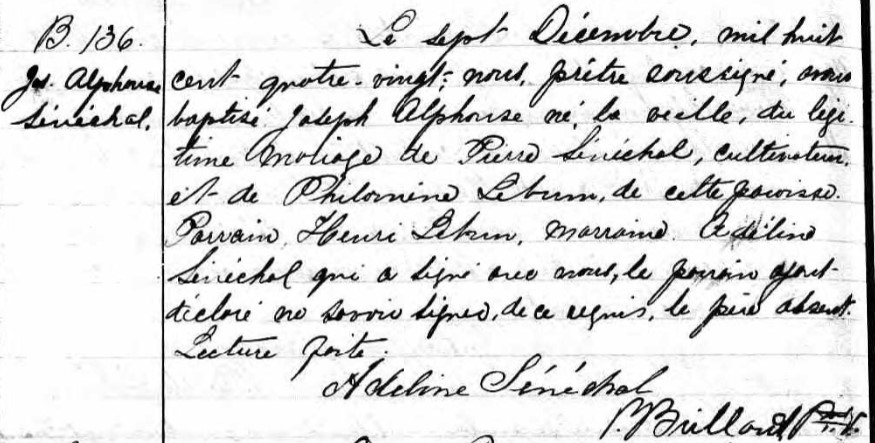 B. 136.
Js. Alphonse
Sénéchal.
Le sept Décembre, mil huit
cent quatre-vingt, nous, prêtre soussigné, avons
baptisé Joseph Alphonse né, la veille, du légi-
time mariage de Pierre Sénéchal, cultivateur,
et de Philomène Lebrun, de cette paroisse.
Parrain, Henri Lebrun, marraine Adéline
Sénéchal qui a signé avec nous, le parrain ayant
déclaré ne savoir signer, de ce requis, le père absent.
Lecture faite.
Adéline Sénéchal
Brillant Ptre